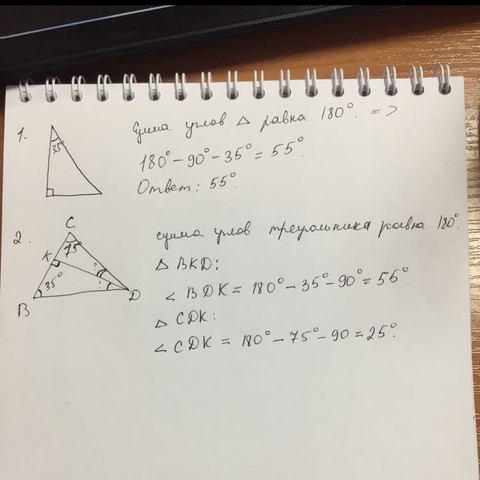 1.
35°
Сумма углов △ равна 180°. =>
180° - 90° - 35° = 55°.
Ответ: 55°.
2.
C
75
K
35°
B
D
сумма углов треугольника равна 180°.
△ BKD:
∠ BDK = 180° - 35° - 90° = 55°
△ CDK:
∠ CDK = 180° - 75° - 90 = 25°.